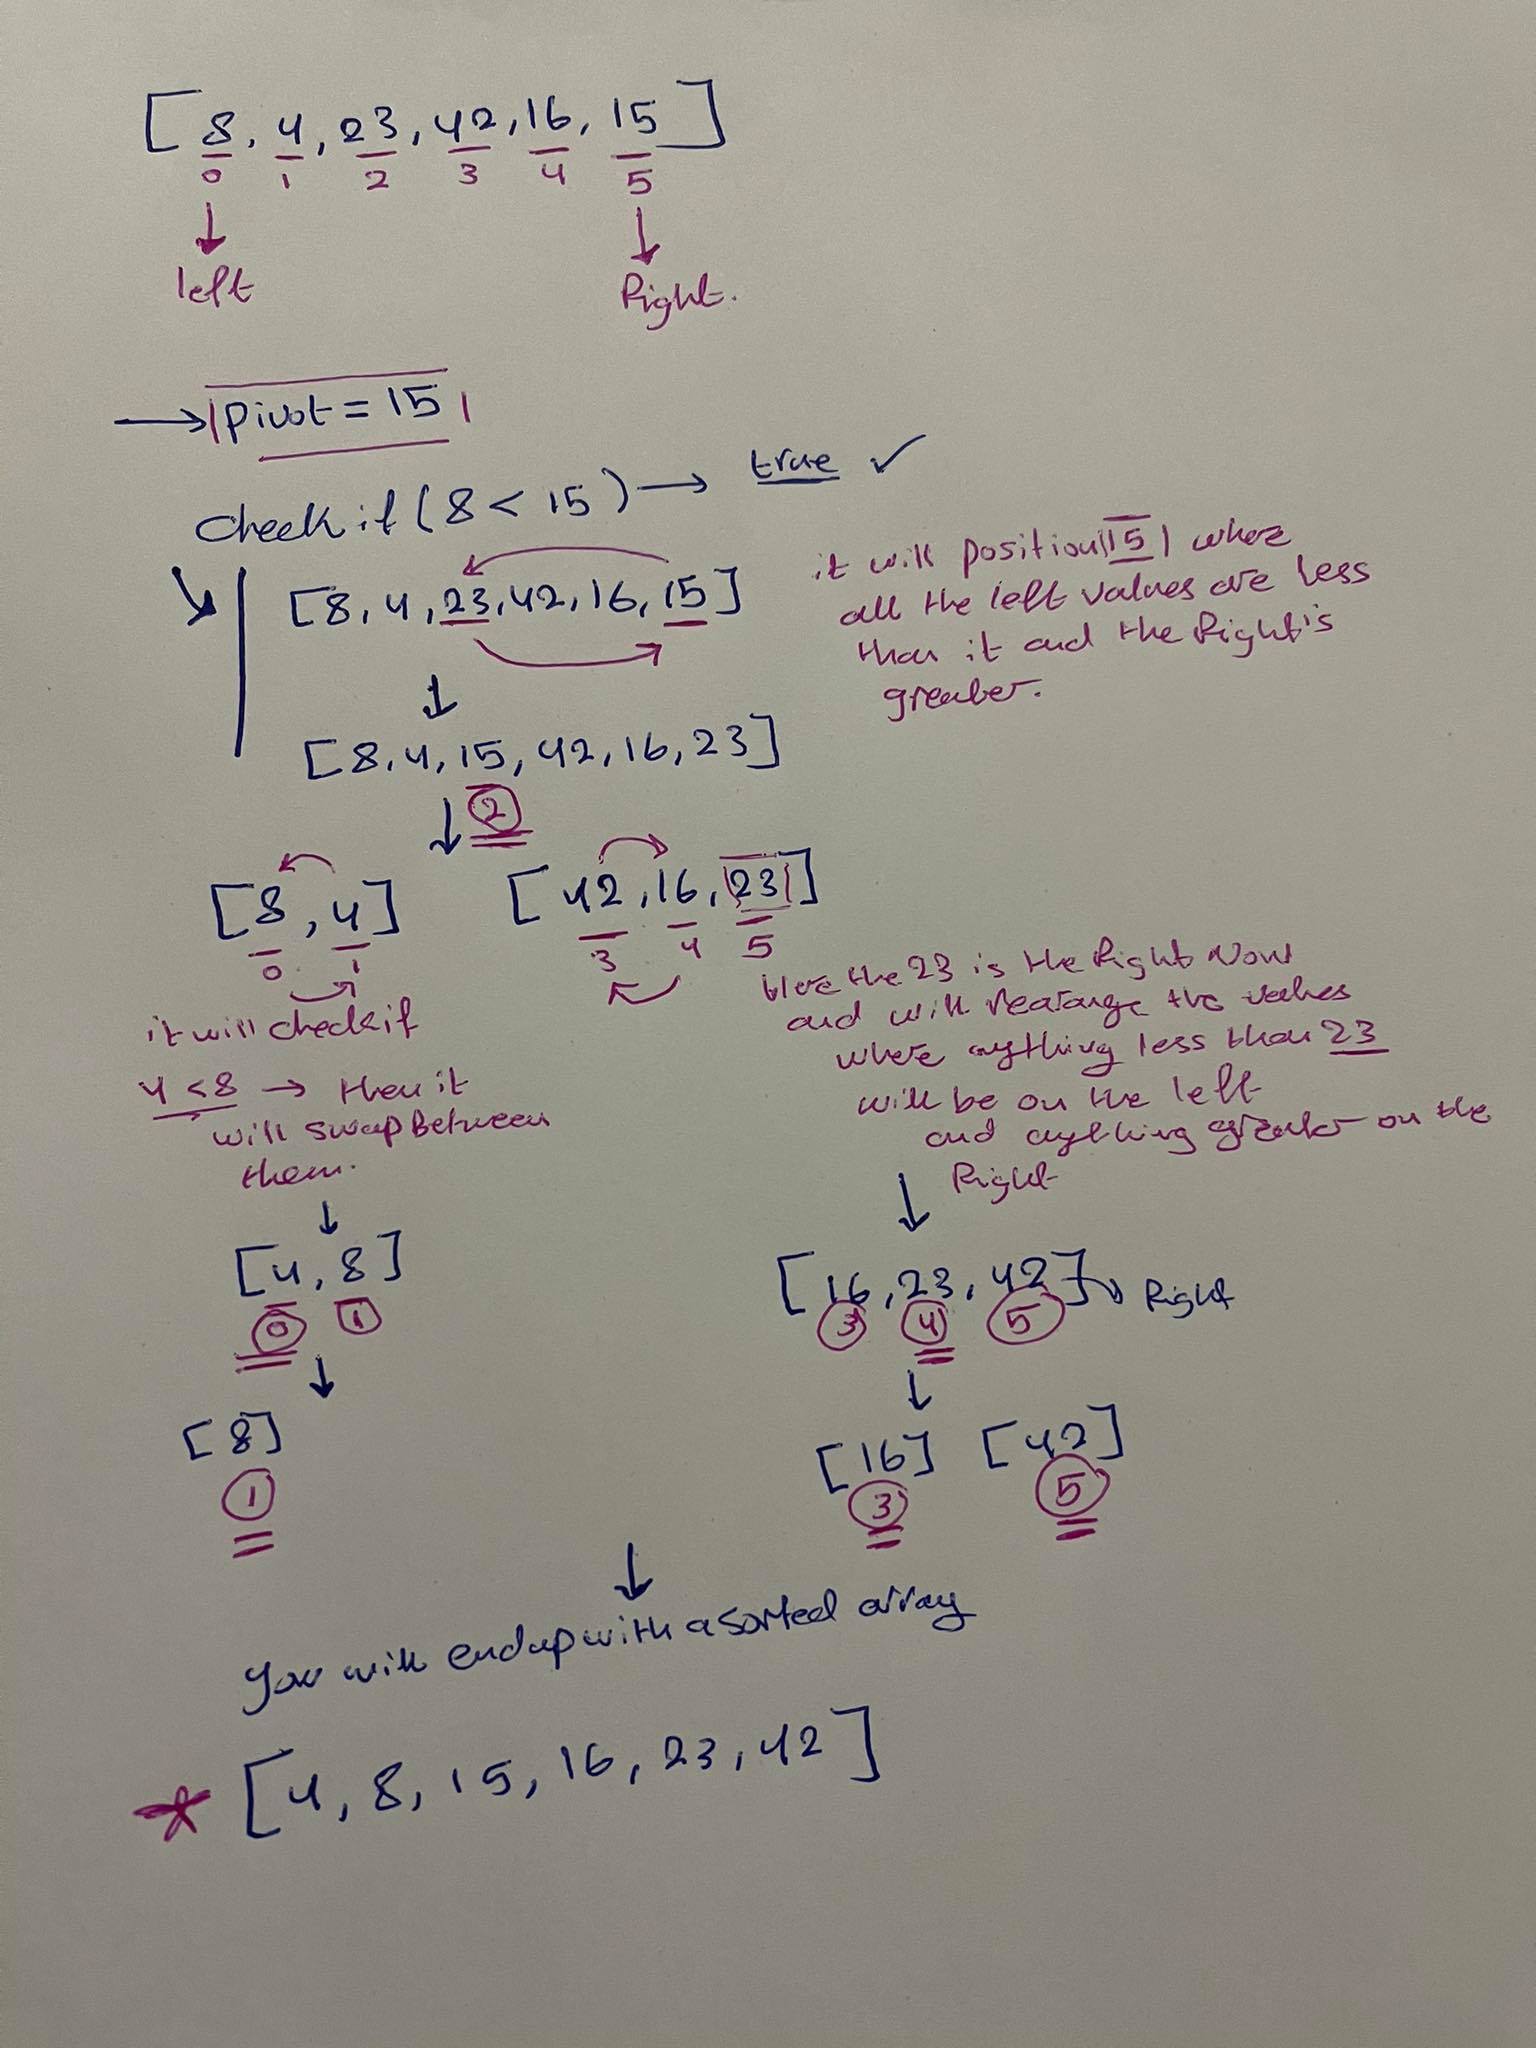 [8, 4, 23, 42, 16, 15]
0 1 2 3 4 5
left Right.
Pivot = 15
check if (8 < 15) → true ✓
[8, 4, 23, 42, 16, 15]
it will position |15| where
all the left values are less
than it and the Right is
greater.
[8, 4, 15, 42, 16, 23]
2
[8, 4]
0 1
it will check if
4 < 8 → then it
will swap Between
them.
[42, 16, 23]
3 4 5
here the 23 is the Right Now
and will rearange the values
where anything less than 23
will be on the left
and anything greater on the
Right
[4, 8]
0 1
[16, 23, 42] → Right
3 4 5
[8]
1
[16] [42]
3 5
you will end up with a sorted array
* [4, 8, 15, 16, 23, 42]